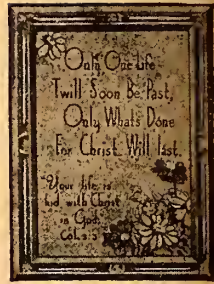 Only One Life
Twill Soon Be Past,
Only What's Done
For Christ Will last
Your life is
hid with Christ
in God.
Col. 3:3